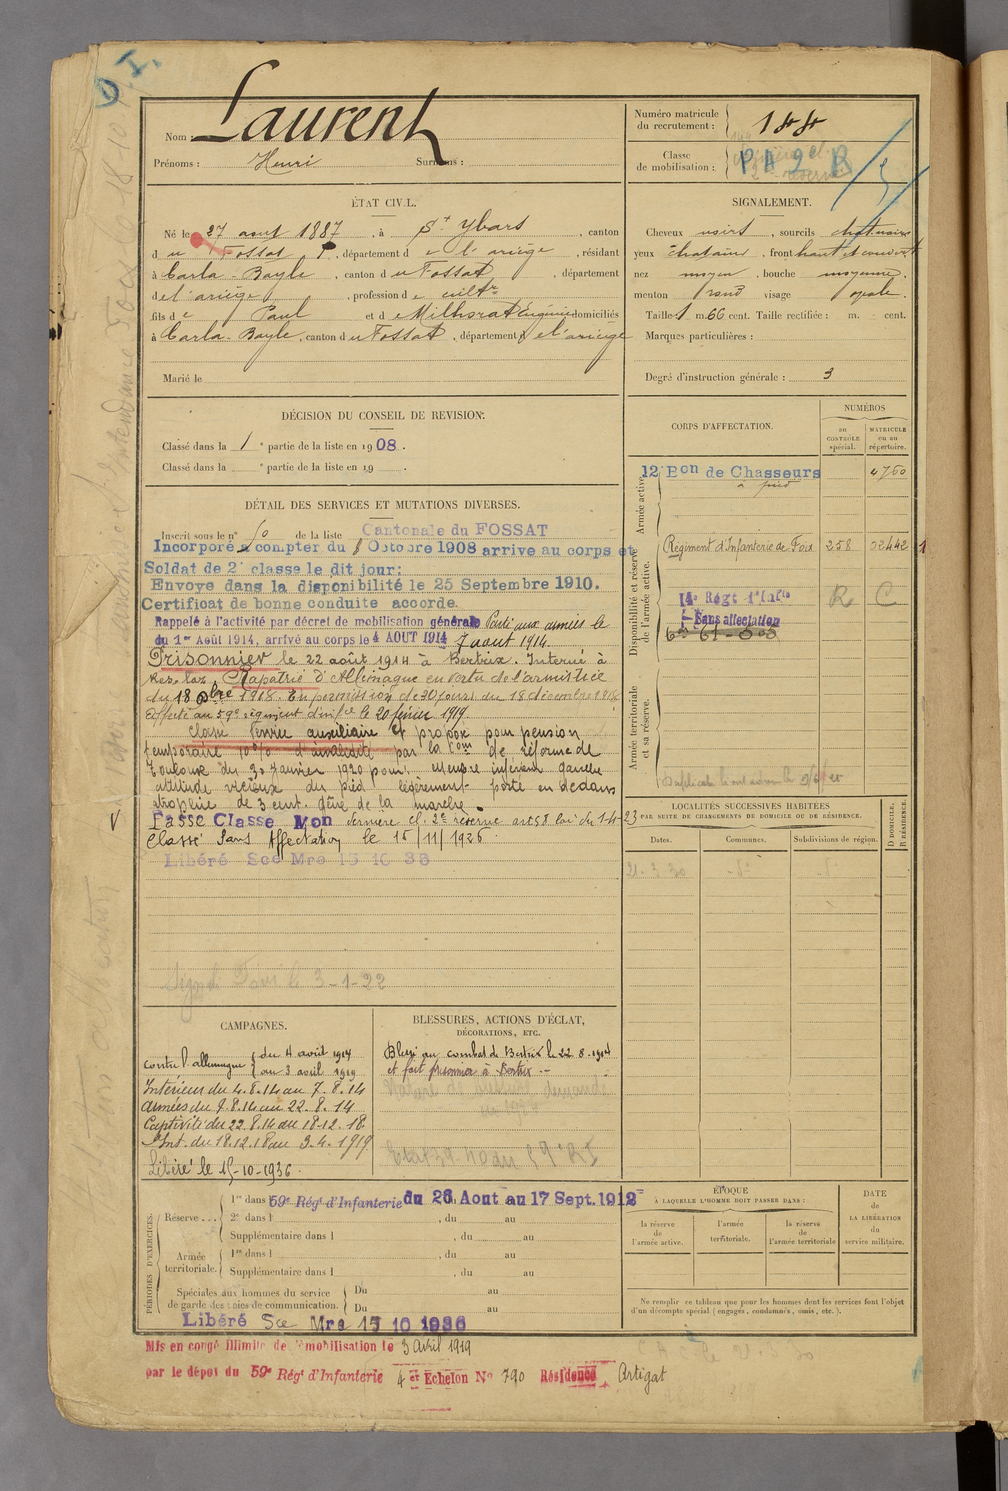 D.I.
Nom : Laurent
Prénoms : Henri Surnoms :
Numéro matricule du recrutement : 144
Classe de mobilisation : PA 2 R
ÉTAT CIVIL.
Né le 27 août 1887, à St Ybars, canton
du Fossat, département de l'ariège, résidant
à Carla-Bayle, canton du Fossat, département
de l'ariège, profession de cultr
fils de Paul et de Milhorat Eugénie domiciliés
à Carla-Bayle, canton du Fossat, département de l'ariège
Marié le
SIGNALEMENT.
Cheveux noirs, sourcils chat. noirs
yeux chatains, front haut et couvert
nez moyen, bouche moyenne.
menton rond visage ovale.
Taille : 1 m. 66 cent. Taille rectifiée : m. cent.
Marques particulières :
Degré d'instruction générale : 3
DÉCISION DU CONSEIL DE REVISION.
Classé dans la 1e partie de la liste en 1908.
Classé dans la e partie de la liste en 19 .
DÉTAIL DES SERVICES ET MUTATIONS DIVERSES.
Inscrit sous le n° de la liste Cantonale du FOSSAT
Incorporé à compter du 8 Octobre 1908 arrive au corps et
Soldat de 2e classe le dit jour:
Envoye dans la disponibilité le 25 Septembre 1910.
Certificat de bonne conduite accorde.
Rappelé à l'activité par décret de mobilisation générale Parti aux armées le
du 1er Août 1914, arrivé au corps le 4 AOUT 1914 7 aout 1914.
Prisonnier le 22 août 1914 à Bertrix. Interné à
Rapatrié d'Allemagne en vertu de l'armistice
du 18 Xbre 1918. En permission de 30 jours du 18 décembre 1918
Affecté au 59e régiment d'infie le 20 février 1919
Classé Service auxiliaire et proposé pour pension
temporaire 10% d'invalidité par la Com de réforme de
Toulouse du 30 janvier 1920 pour: membre inférieur gauche
attitude vicieuse du pied légèrement porté en dedans
atrophie de 3 cent. gêne de la marche.
Passe Classe Mon dernière cl. 2e réserve art 58 loi du 1-4-23
Classé Sans Affectation le 15/11/1926.
Libéré Sce Mre 15 10 36
le 3-1-22
CORPS D'AFFECTATION.
NUMÉROS
au CONTRÔLE spécial.
MATRICULE ou au répertoire.
Armée active.
12 Bon de Chasseurs à pied 4760
Disponibilité et réserve de l'armée active.
Régiment d'Infanterie de Foix 258 02442
14e Régt d'Infie R C
Sans affectation
Armée territoriale et sa réserve.
LOCALITÉS SUCCESSIVES HABITÉES
PAR SUITE DE CHANGEMENTS DE DOMICILE OU DE RÉSIDENCE.
Dates. Communes. Subdivisions de région. D DOMICILE. R RÉSIDENCE.
21-3-30
CAMPAGNES.
Contre l'allemagne du 4 août 1914
au 3 avril 1919
Intérieur du 4.8.14 au 7.8.14
Armées du 8.8.14 au 22.8.14
Captivité du 22.8.14 au 18.12.18
Int. du 18.12.18 au 3.4.1919
Libéré le 15-10-1936.
BLESSURES, ACTIONS D'ÉCLAT,
DÉCORATIONS, ETC.
Blessé au combat de Bertrix le 22.8.1914
et fait prisonnier à Bertrix.
PÉRIODES D'EXERCICES.
Réserve... 1re dans l 59e Régt d'Infanterie du 26 Aout au 17 Sept. 1912
2e dans l , du au
Supplémentaire dans l , du au
Armée territoriale. 1re dans l , du au
Supplémentaire dans l , du au
Spéciales aux hommes du service de garde des voies de communication. Du au
Du au
Libéré Sce Mre 15 10 1936
ÉPOQUE
À LAQUELLE L'HOMME DOIT PASSER DANS :
la réserve de l'armée active. l'armée territoriale. la réserve de l'armée territoriale
DATE DE LA LIBÉRATION du service militaire.
Ne remplir ce tableau que pour les hommes dont les services font l'objet
d'un décompte spécial (engagés, condamnés, omis, etc.).
Mis en congé illimité de démobilisation le 3 Avril 1919
par le dépôt du 59e Régt d'Infanterie 4e Echelon No 790 Résidence Artigat